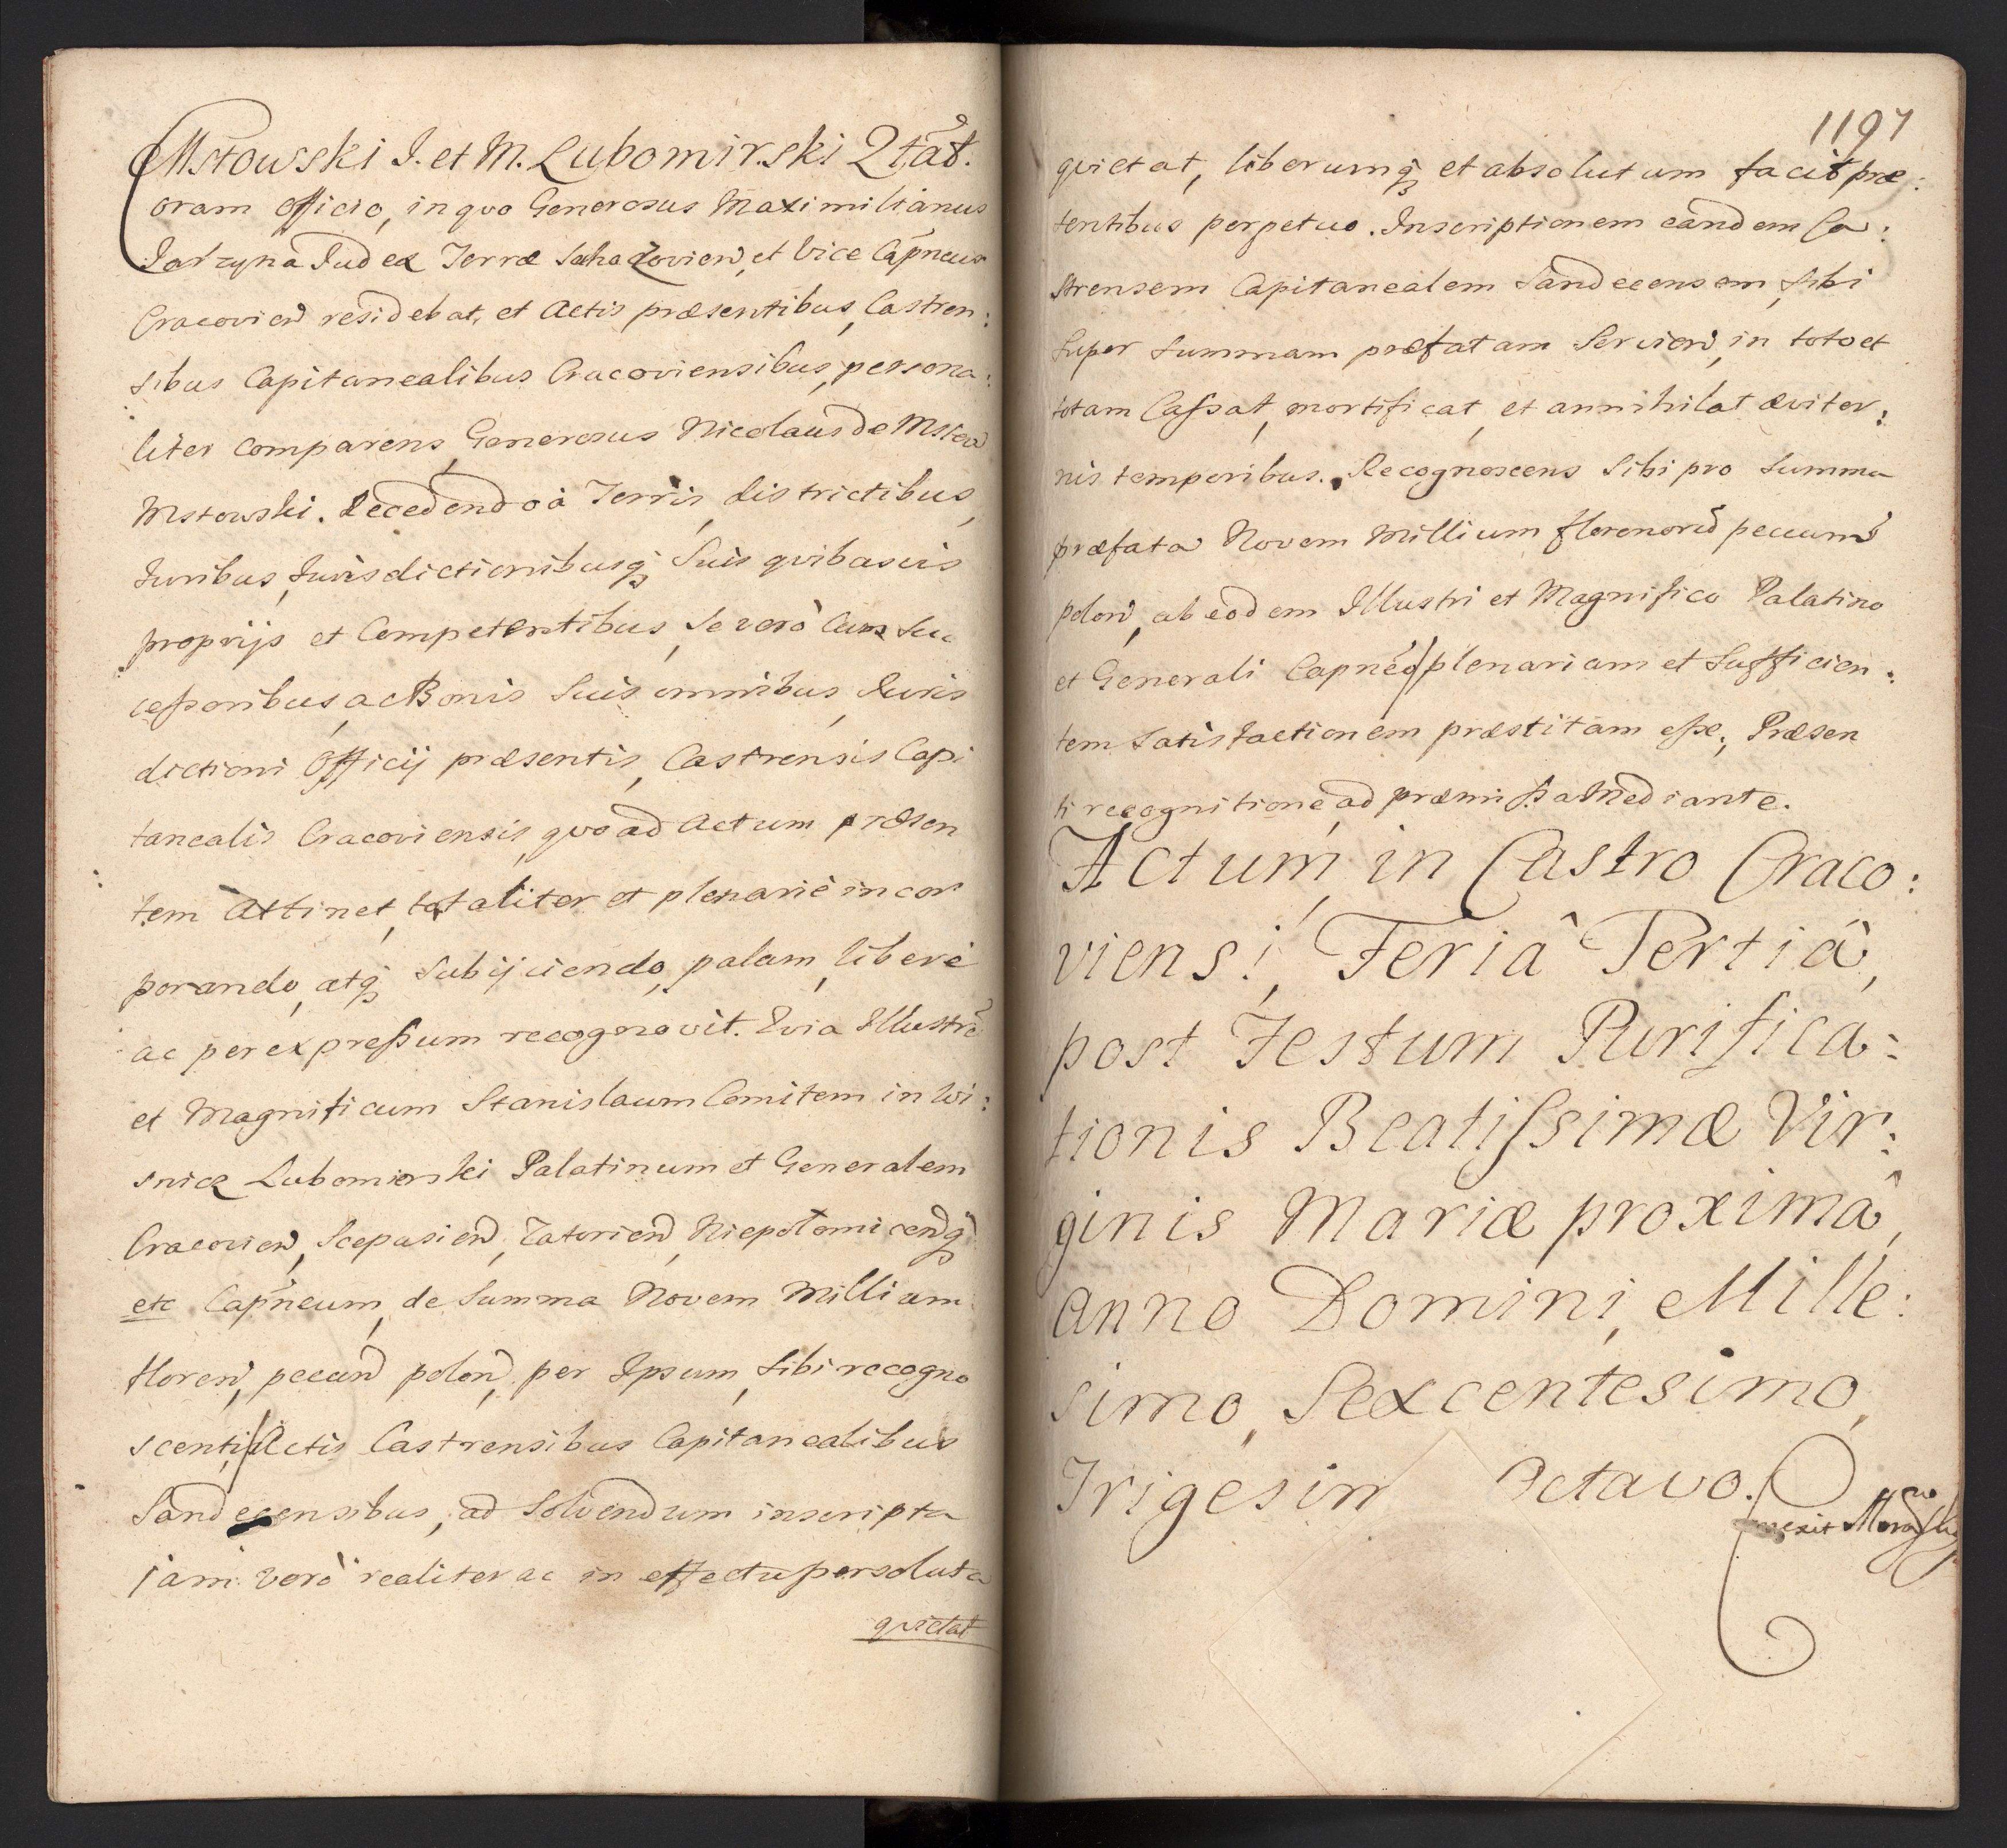 Mstowski I. et M. Lubomirski Qtat.
oram officio, in quo Generosus Maximilianus
Jarzyna Judex Terræ Sochaczovien, et Vice Capneus
Cracovien residebat, et Actis præsentibus, Castren:
sibus Capitanealibus Cracoviensibus, persona:
liter comparens, Generosus Nicolaus de Mstow
Mstowski. Recedendo à Terris, districtibus,
Juribus, Jurisdictionibusq Suis quibasvis
proprijs et Competentibus, Se verò Cum Suc
cessoribus, ac Bonis Suis omnibus, Juris
dictioni Officij præsentis, Castrensis Capi
tanealis Cracoviensis, quo ad Actum præsen
tem Attinet, totaliter et plenariè incor
porando, atq Subijciendo, palam, liberè
ac per expressum recognovit. Quia Illustrē
et Magnificum Stanislaum Comitem in Wi:
snicz Lubomirski Palatinum et Generalem
Cracovien, Scepusien, Zatorien, Niepołomicenq
etc Capneum, de Summa Novem Millium
floren, pecun polon, per Ipsum, Sibi recogno
scenti, Actis Castrensibus Capitanealibus
Sandecensibus, ad Solvendum inscripta
jam verò realiter ac in effectu persoluta
quietat
1197
quietat, liberumq et absolutum facit præ:
tentibus perpetuo. Inscriptionem eandem Ca:
strensem Capitanealem Sandecensem, Sibi
Super Summam præfatam Servien, in toto et
totam Cassat, mortificat, et annihilat æviter:
nis temporibus. Recognoscens Sibi pro Summa
præfata Novem Millium florenorū pecuum
polon, ab eodem Illustri et Magnifico Palatino
et Generali Capneo, plenariam et Sufficien:
tem Satisfactionem præstitam esse, Præsen
ti recognitione ad præmissa Mediante.
Actum, in Castro Craco:
viensi, Feriâ Tertiâ,
post Festum Purifica:
tionis Beatissimæ Vir:
ginis Mariæ proximâ,
Anno Domini, Mille:
simo, Sexcentesimo,
Trigesim Octavo.